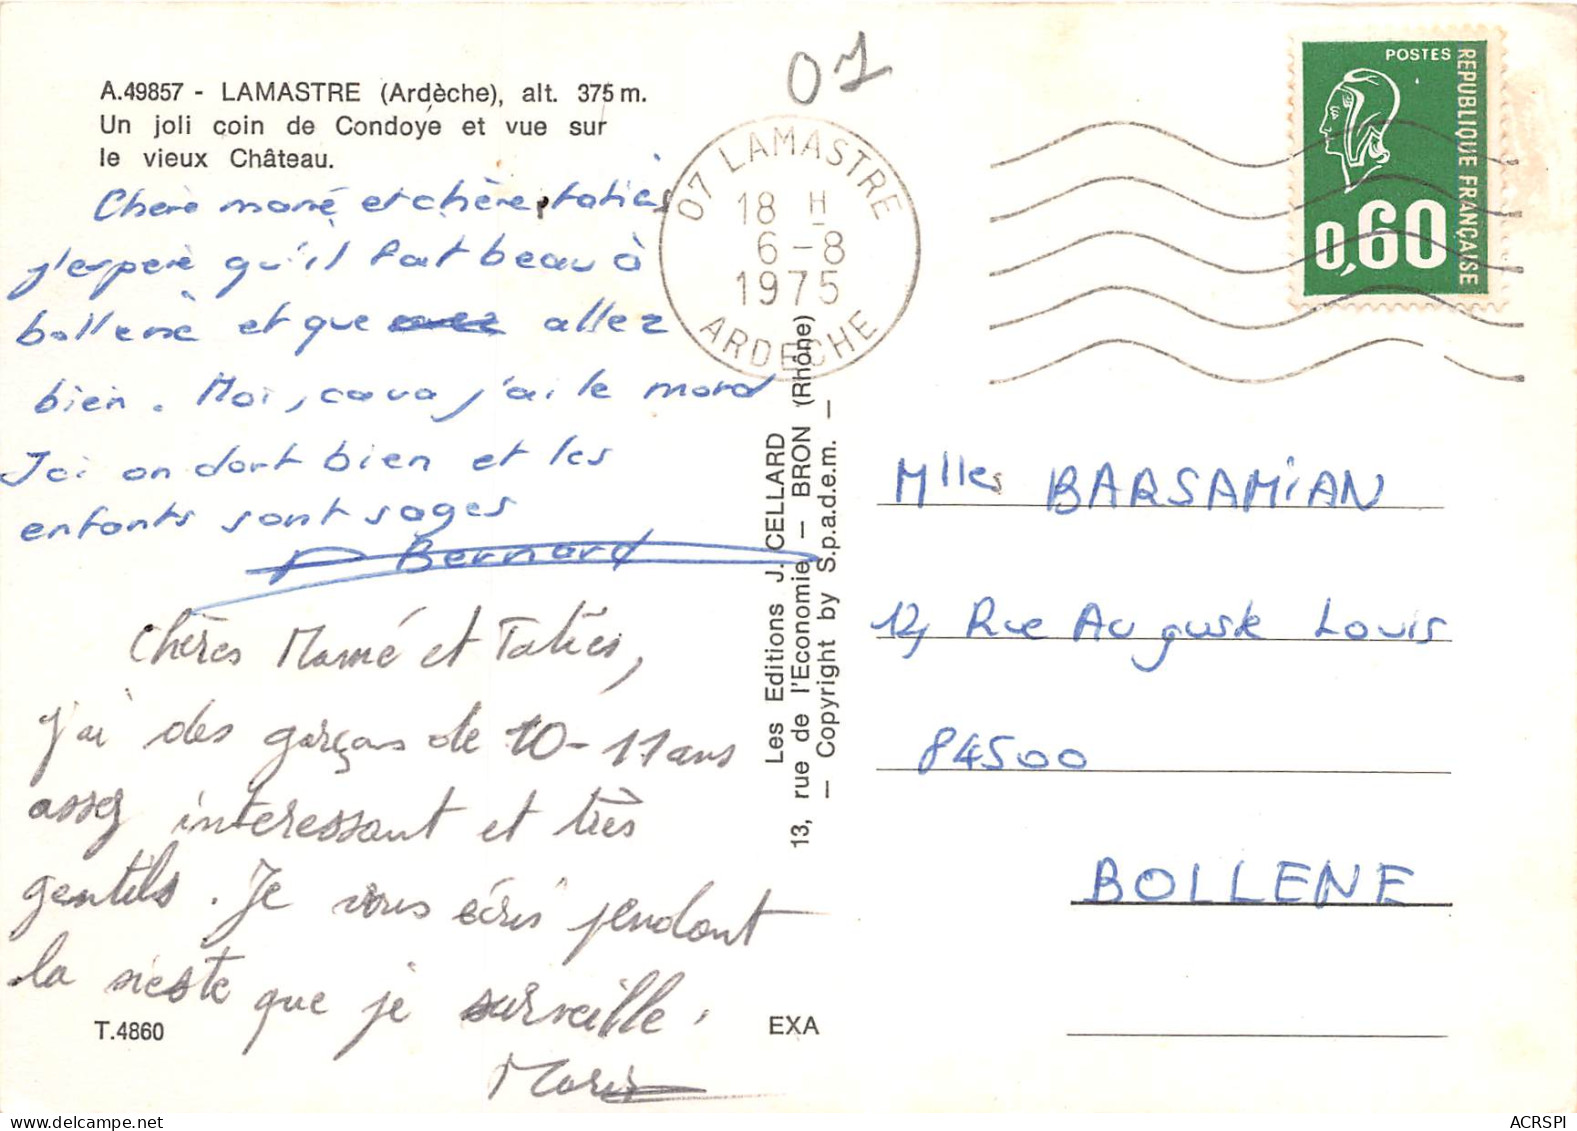 A.49857 - LAMASTRE (Ardèche), alt. 375 m.
Un joli coin de Condoye et vue sur
le vieux Château.
01
Chère mamé et chère, taties
j'espere qu'il fait beau à
bollene et que allez
bien. Moi, cava j'ai le moral
Ici on dort bien et les
enfants sont sages
Bernard
Chères Mamé et Taties,
j'ai des garçons de 10-11 ans
assez interessant et très
gentils. Je vous écris pendant
la sieste que je surveille.
T.4860
EXA
Les Editions J. CELLARD
13, rue de l'Economie — BRON (Rhône)
— Copyright by S.p.a.d.e.m. —
07 LAMASTRE
18 H
6-8
1975
ARDECHE
POSTES
REPUBLIQUE FRANÇAISE
0,60
Mlles BARSAMiAN
12, Rue Auguste Louis
84500
BOLLENE
ACRSPI